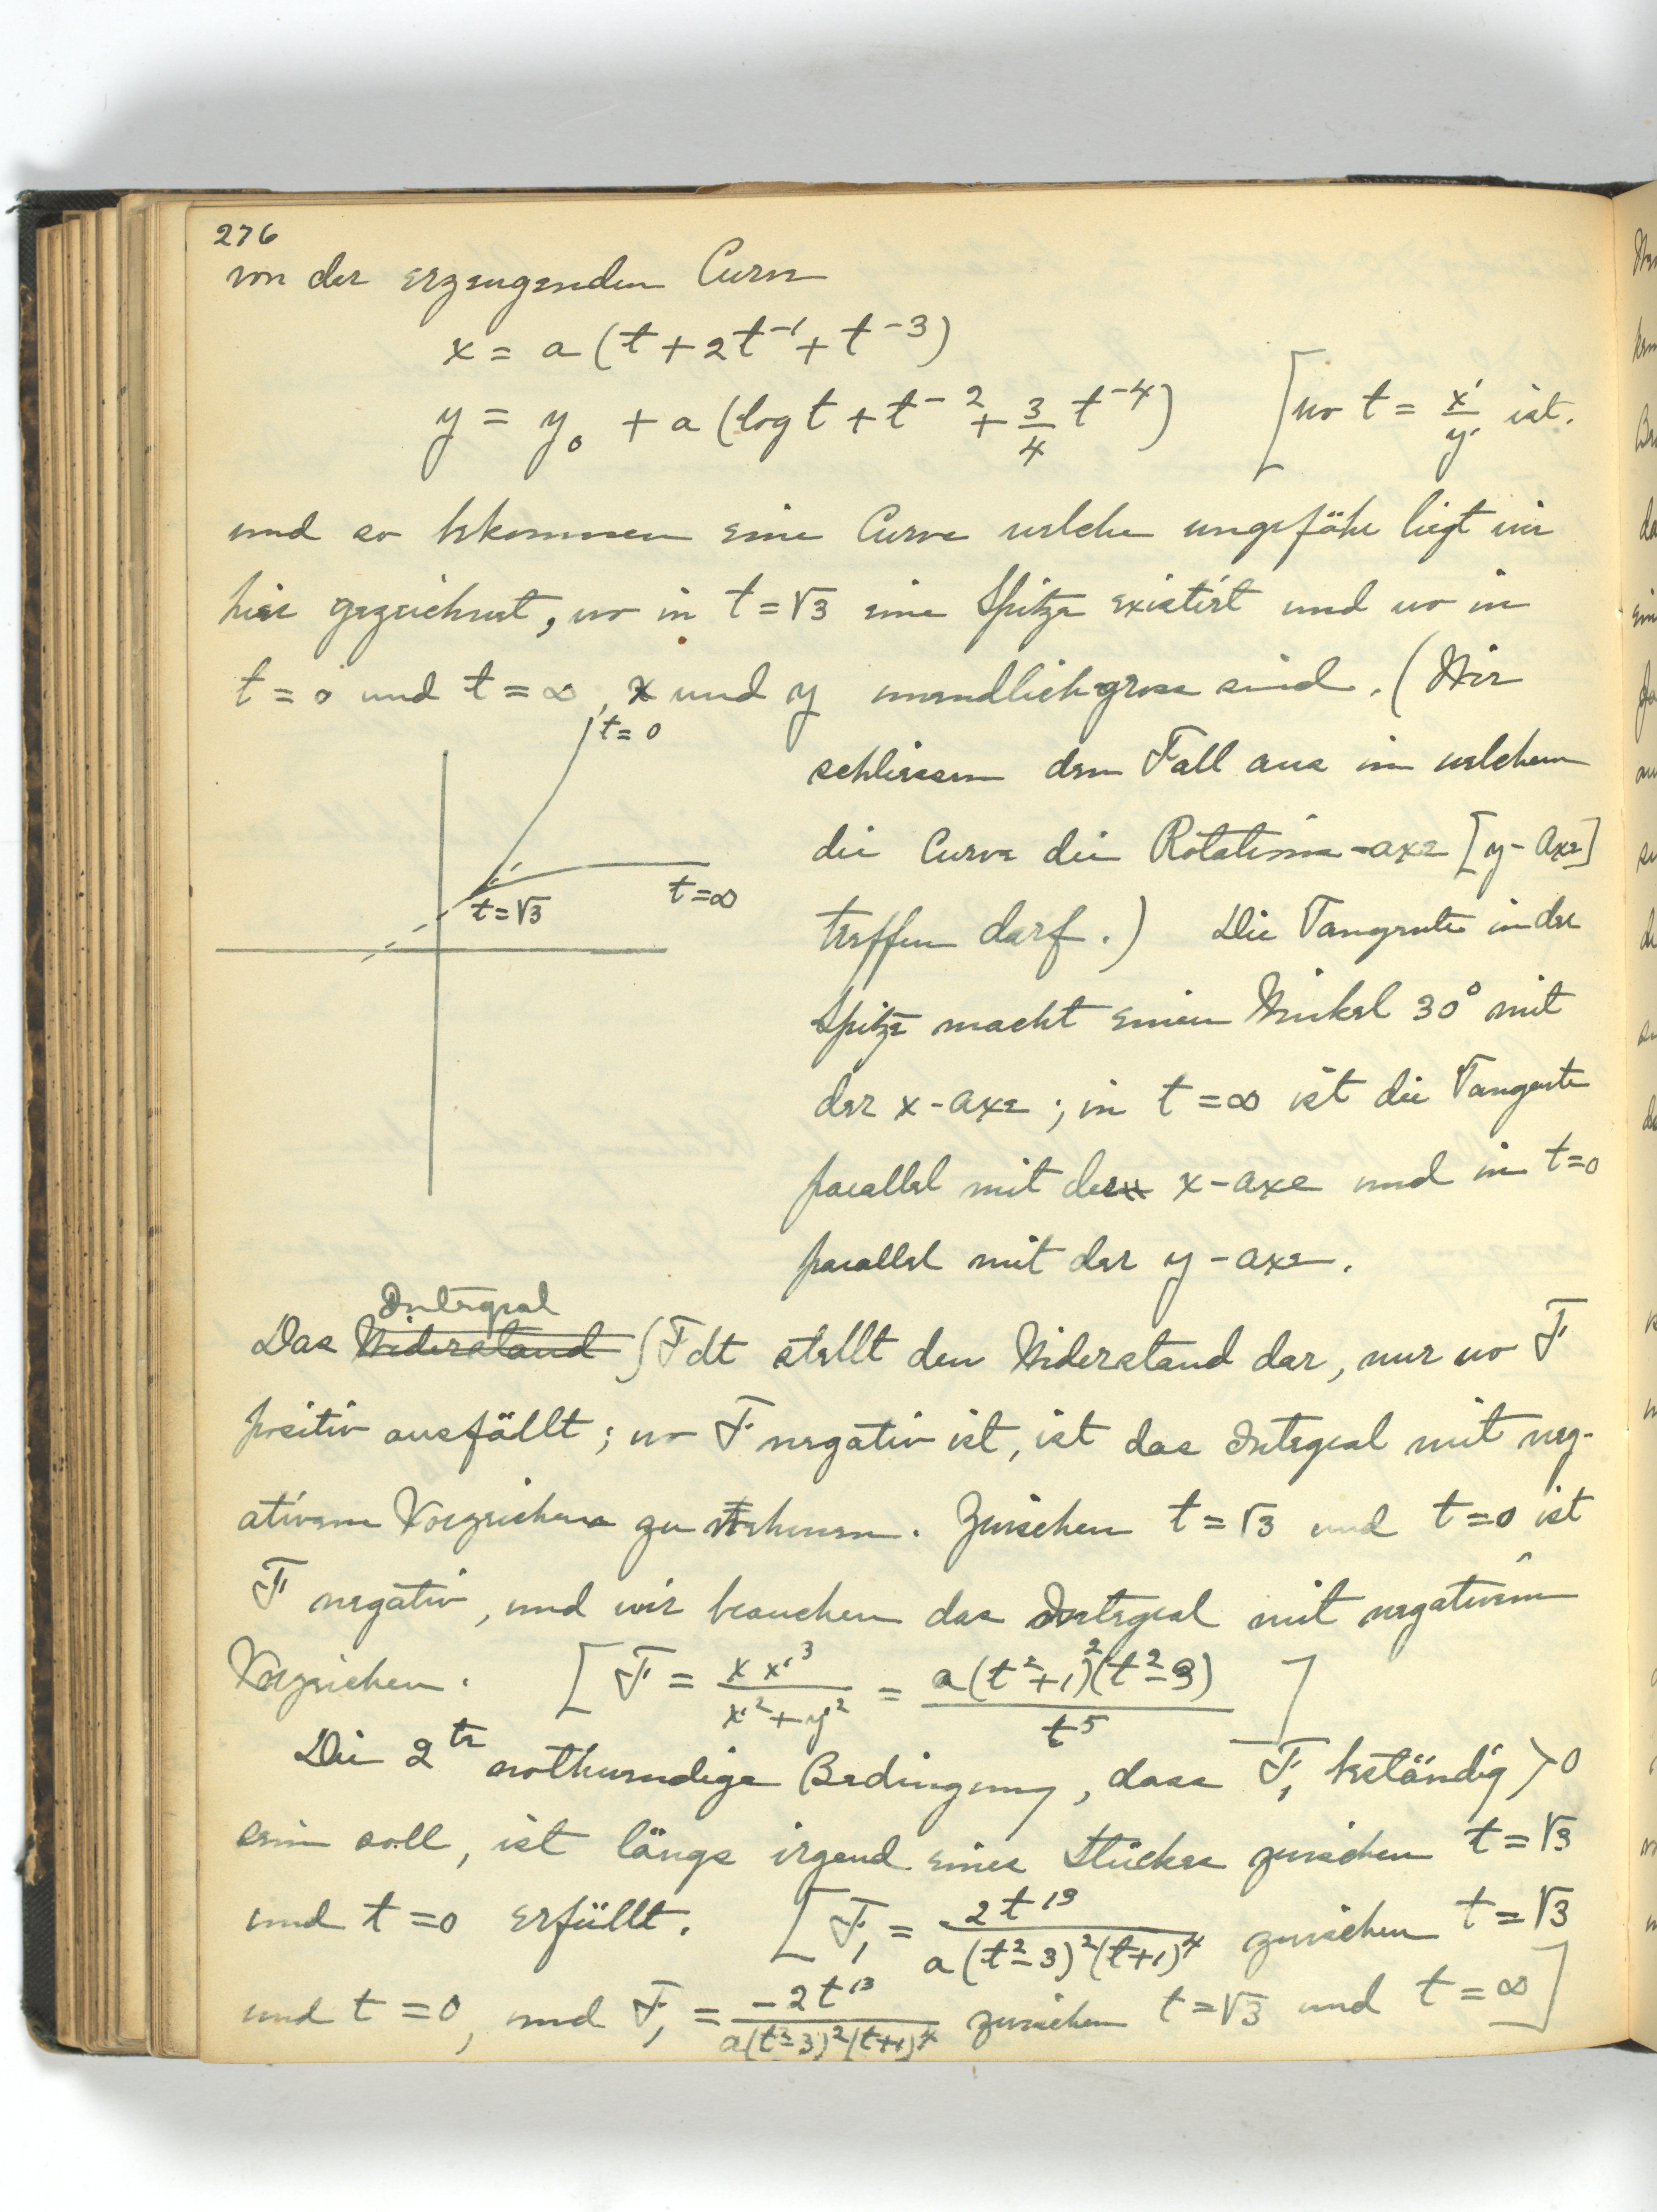 276
von der erzeugenden Curve
x = a (t + 2t⁻¹ + t⁻³)
y = y₀ + a (log t + t⁻² + 3/4 t⁻⁴) [wo t = x'/y' ist.
und so bekommen eine Curve welche ungefähr liegt wie
hier gezeichnet, wo in t = √3 eine Spitze existirt und wo in
t = 0 und t = ∞, x und y unendlich gross sind. (Wir
t = 0
schliessen den Fall aus in welchem
die Curve die Rotations-axe [y-Axe]
t = √3
t = ∞
treffen darf.) Die Tangente in der
Spitze macht einen Winkel 30° mit
der x-axe; in t = ∞ ist die Tangente
parallel mit der x-axe und in t=0
parallel mit der y-axe.
Integral
Das Widerstand ∫F dt stellt den Widerstand dar, nur wo F
positiv ausfällt; wo F negativ ist, ist das Integral mit neg-
ativem Vorzeichen zu nehmen. Zwischen t = √3 und t = 0 ist
F negativ, und wir brauchen das Integral mit negativem
Vorzeichen. [F = x x'³/x'²+y'² = a(t²+1)²(t²-3)/t⁵]
Die 2te nothwendige Bedingung, dass F₁ beständig > 0
sein soll, ist längs irgend eines Stückes zwischen t = √3
und t = 0 erfüllt. [F₁ = 2t¹³/a(t²-3)²(t+1)⁴ zwischen t = √3
und t = 0, und F₁ = -2t¹³/a(t²-3)²(t+1)⁴ zwischen t = √3 und t = ∞]